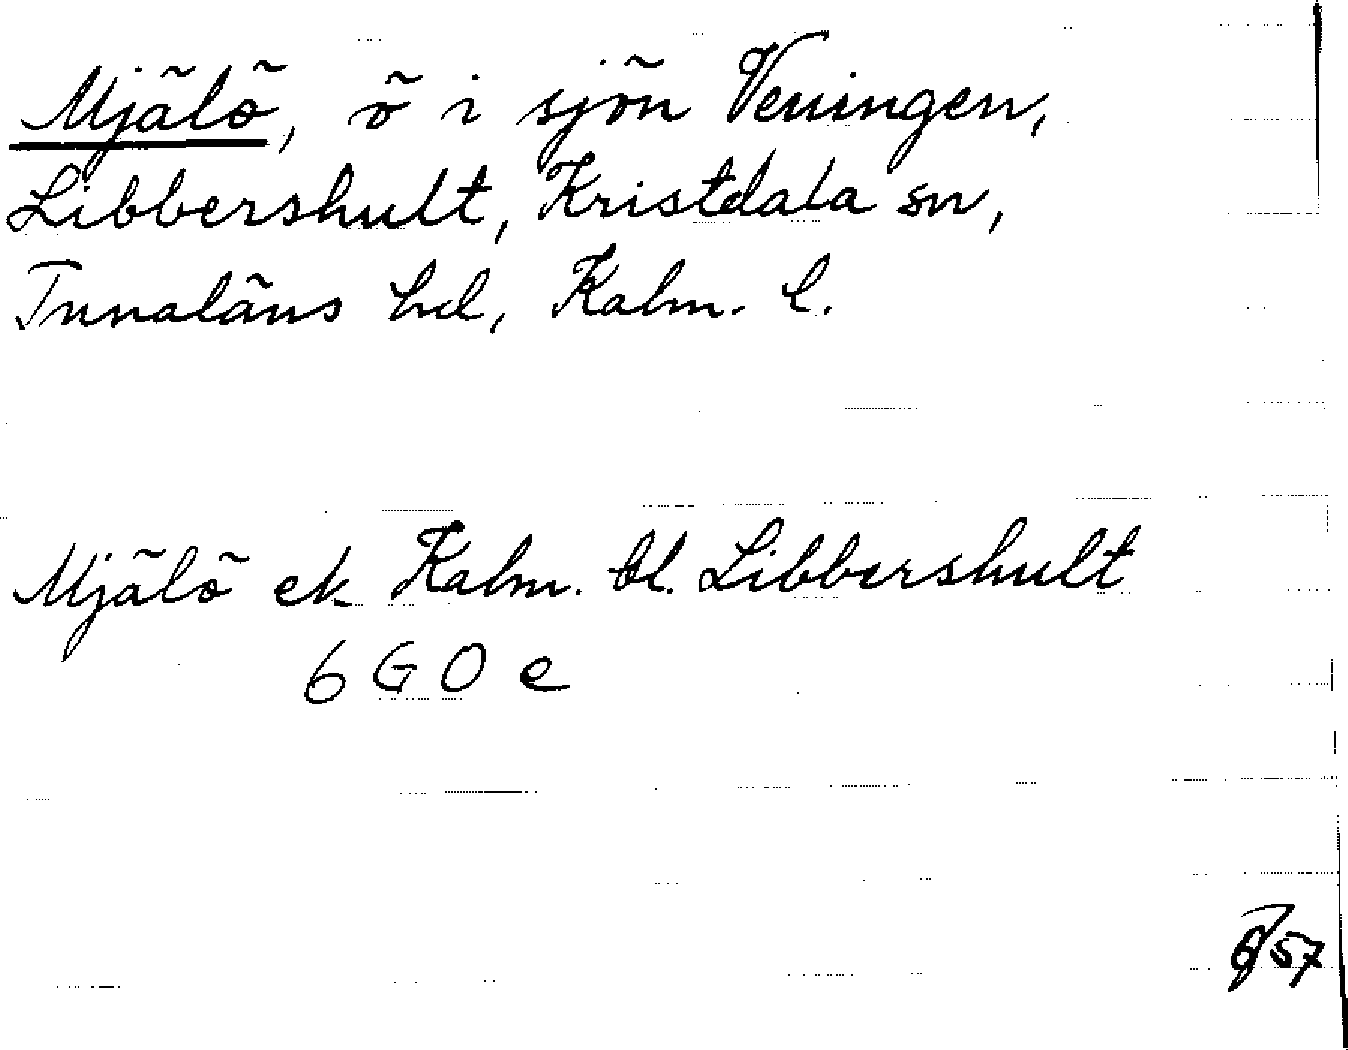 Mjälö, ö i sjön Veningen,
Libbershult, Kristdala sn,
Tunaläns hd, Kalm. l.
Mjälö ek Kalm. bl. Libbershult
6 G O e
57